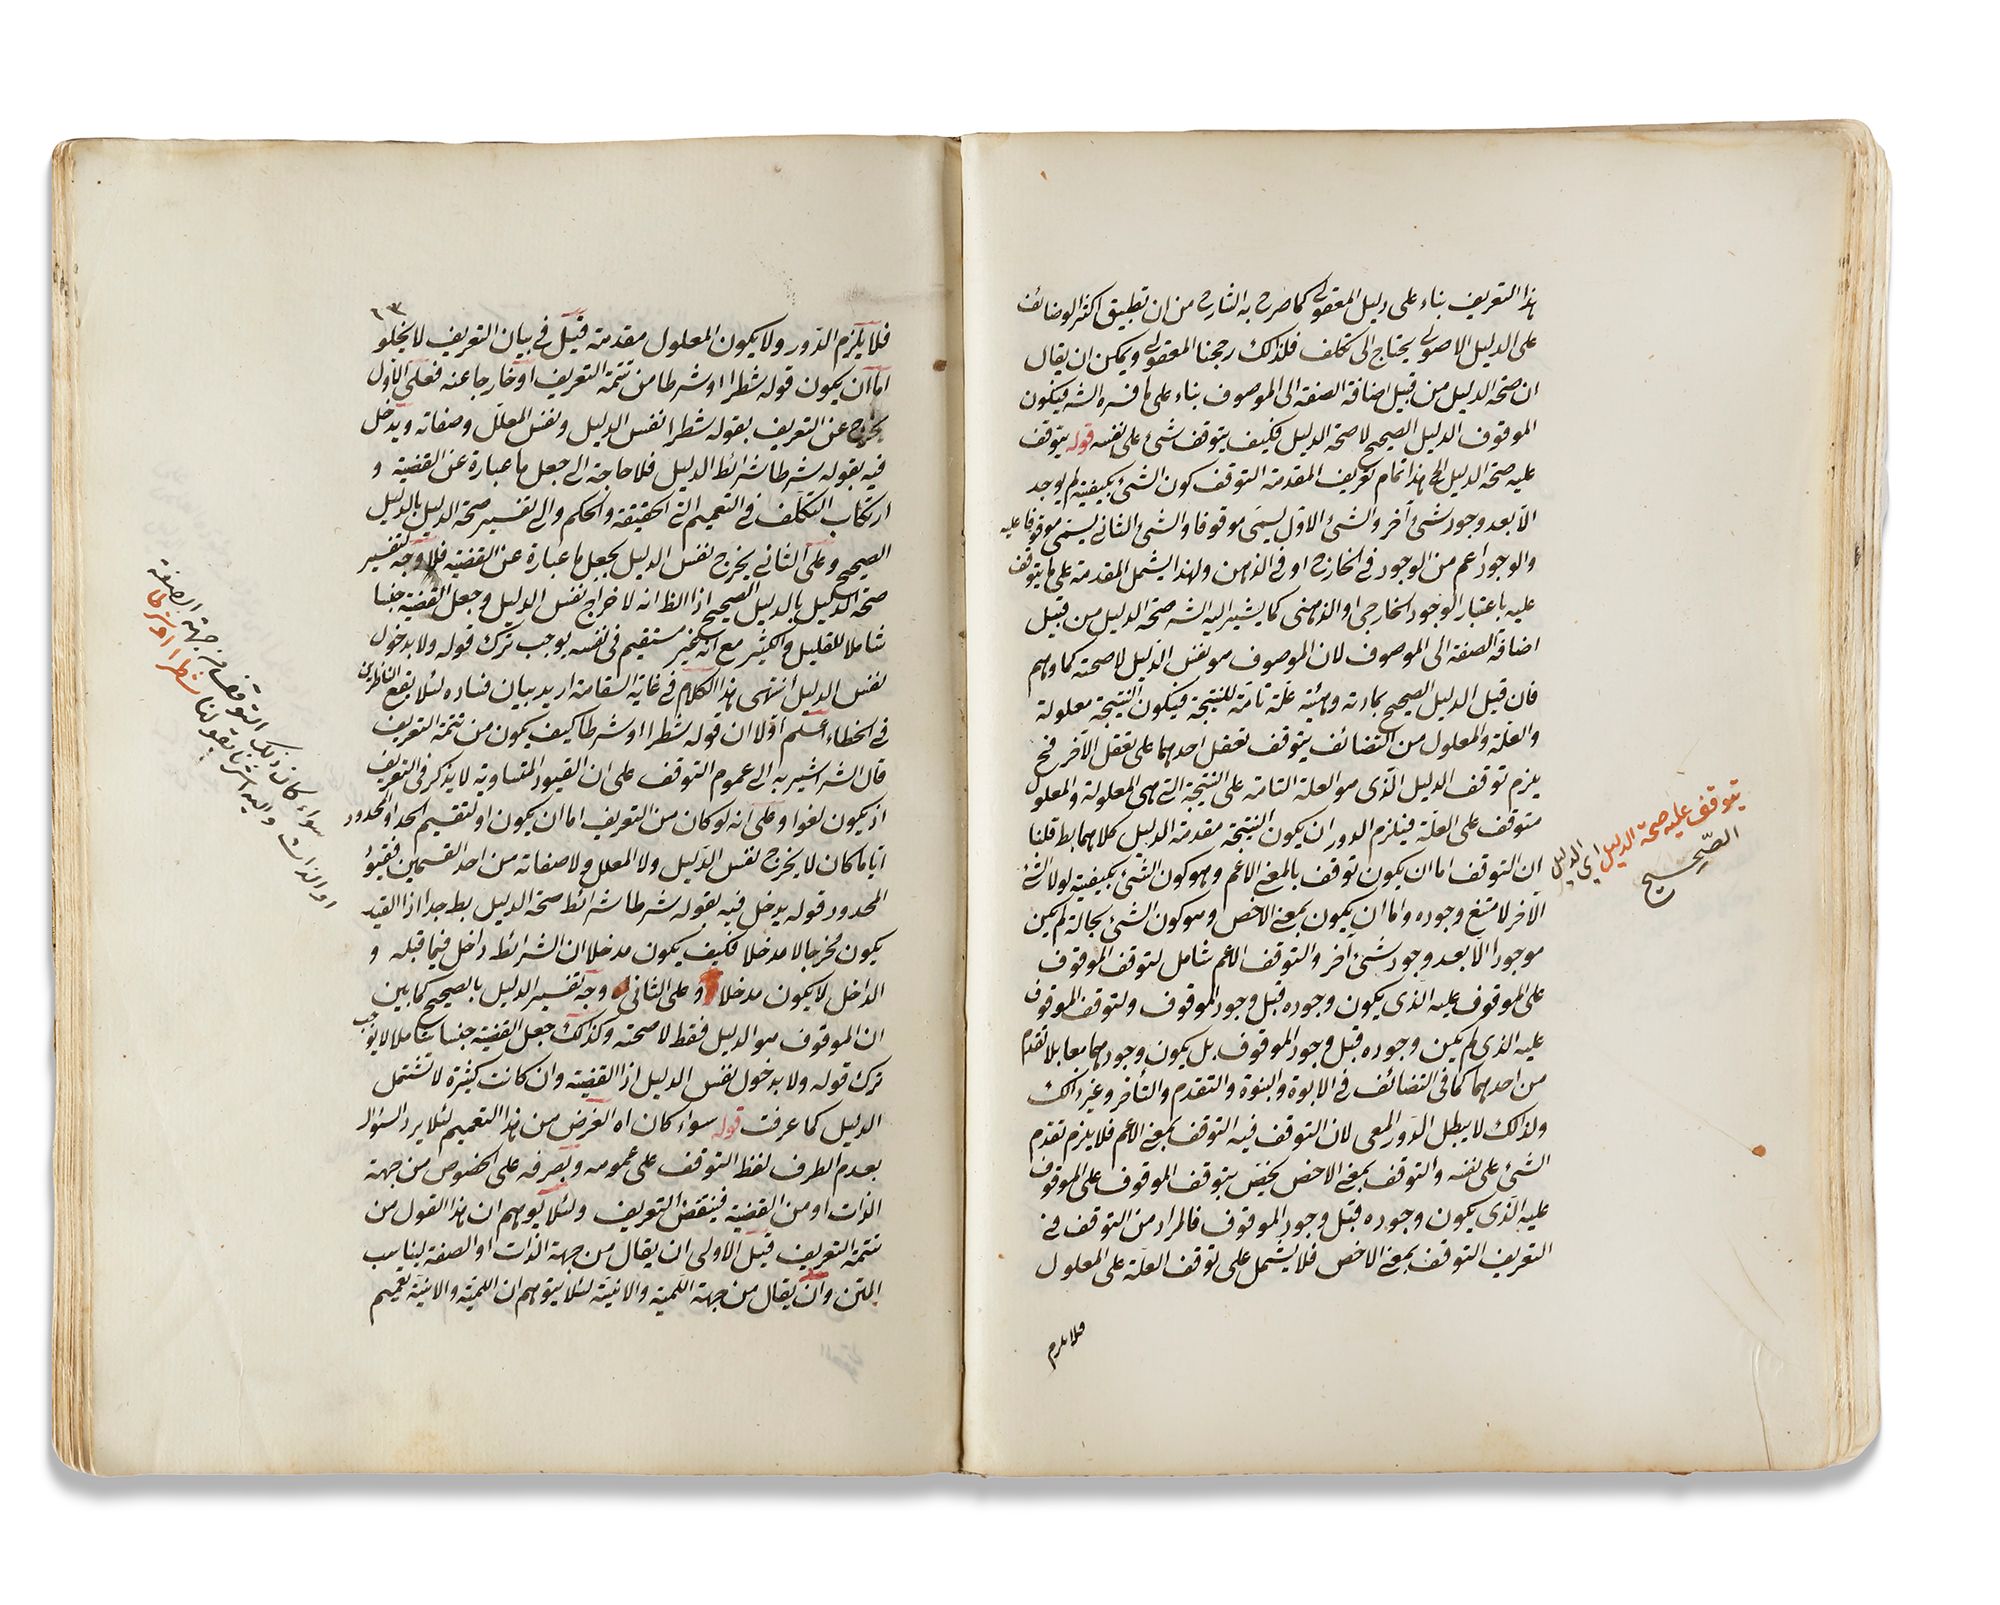 هذا التعريف بناء على دليل المعقولى كما صرح به الشارح من ان تطبيق اكثر الوضائف
على الدليل الاصولى يحتاج الى تكلف فلذالك رجحنا المعقولى ويمكن ان يقال
ان صحة الدليل من قبيل اضافة الصفة الى الموصوف بناء على ما فسره الشه فيكون
الموقوف الدليل الصحيح لا صحة الدليل فكيف يتوقف شئ على نفسه قوله يتوقف
عليه صحة الدليل الخ هذا تمام تعريف المقدمة التوقف كون الشئ بكيفية لم يوجد
الا بعد وجود شئ آخر والشئ الاول يسمى موقوفا والشئ الثانى يسمى موقوفا عليه
والوجود اعم من الوجود فى الخارج او فى الذهن ولهذا يشمل المقدمة على ما يتوقف
عليه باعتبار الوجود الخارجى او الذهنى كما يشير اليه الشه صحة الدليل من قبيل
اضافة الصفة الى الموصوف لان الموصوف هو نفس الدليل لا صحته كما وهم
فان قيل الدليل الصحيح بمادته وهيئته علة تامة للنتيجة فيكون النتيجة معلولة
والعلة والمعلول من التضائف يتوقف تعقل احدهما على تعقل الآخر فح
يلزم توقف الدليل الذى هو العلة التامة على النتيجة التى هى المعلولة والمعلول
متوقف على العلة فيلزم الدور ان يكون النتيجة مقدمة الدليل كلاهما بط قلنا
ان التوقف اما ان يكون توقف بالمعنى الاعم وهو كون الشئ بكيفية لولا الشئ
الآخر لامتنع وجوده واما ان يكون بمعنى الاخص وهو كون الشئ بحالة لم يكن
موجودا الا بعد وجود شئ آخر والتوقف الاعم شامل لتوقف الموقوف
على الموقوف عليه الذى يكون وجوده قبل وجود الموقوف ولتوقف الموقوف
عليه الذى لم يكن وجوده قبل وجود الموقوف بل يكون وجودهما معا بلا تقدم
من احدهما كما فى التضائف فى الابوة والبنوة والتقدم والتأخر وغير ذالك
ولذالك لا يبطل الدور المعى لان التوقف فيه التوقف بمعنى الاعم فلا يلزم تقدم
الشئ على نفسه والتوقف بمعنى الاخص يخص بتوقف الموقوف على الموقوف
عليه الذى يكون وجوده قبل وجود الموقوف فالمراد من التوقف فى
التعريف التوقف بمعنى الاخص فلا يشمل على توقف العلة على المعلول
فلا يلزم
يتوقف عليه صحة الدليل اى الدليل
الصحيح
٦٣
فلا يلزم الدور ولا يكون المعلول مقدمة قيل فى بيان التعريف لا يخلو
اما ان يكون قوله شطرا او شرطا من تتمة التعريف او خارجا عنه فعلى الاول
يخرج عن التعريف بقوله شطرا نفس الدليل ونفس المعلل وصفاته ويدخل
فيه بقوله شرطا شرائط الدليل فلا حاجة الى جعل ما عبارة عن القضية و
ارتكاب التكلف فى التعميم التى الحقيقة والحكم والى تفسير صحة الدليل بالدليل
الصحيح وعلى الثانى يخرج نفس الدليل بجعل ما عبارة عن القضية فلا وجه لتفسير
صحة الدليل بالدليل الصحيح اذا الظ انه لاخراج نفس الدليل وجعل القضية جنسا
شاملا للقليل والكثير مع انه غير مستقيم فى نفسه يوجب ترك قوله ولا بدخول
نفس الدليل انتهى هذا الكلام فى غاية السقامة اريد بيان فساده لئلا يقع الناظرين
فى الخطاء اعلم اولا ان قوله شطرا او شرطا كيف يكون من تتمة التعريف
قال الشه اشير به الى عموم التوقف على ان القيود المتساوية لا يذكر فى التعريف
اذ يكون لغوا وعلى انه لو كان من التعريف اما ان يكون او لتقسيم الحد او المحدود
ايا ما كان لا يخرج نفس الدليل ولا المعلل ولا صفاته من احد القسمين فقيؤ
المحدود قوله يدخل فيه بقوله شرطا شرائط صحة الدليل بط جدا اذا القيد
يكون مخرجا لا مدخلا فكيف يكون مدخلا ان الشرائط داخل فيما قبله و
الداخل لا يكون مدخلا وعلى الثانى وجه تفسير الدليل بالصحيح كما بين
ان الموقوف هو الدليل فقط لا صحته وكذالك جعل القضية جنسا شاملا لا يوجب
ترك قوله ولا بدخول نفس الدليل اذ القضية وان كانت كثيرة لا تشتمل
الدليل كما عرفت قوله سواء كان اه الغرض من هذا التعميم لئلا يرد السؤال
بعدم الطرف لفظ التوقف على عمومه وبصرفه على الخصوص من جهة
الذات او من القضية فينتقض التعريف ولئلا يوهم ان هذا القول من
تتمة التعريف قيل الاولى ان يقال من جهة الذات او الصفة ليناسب
المتن وان يقال من جهة اللمية والانية لئلا يتوهم ان اللمية والانية تعميم
سواء كان ذلك التوقف من جهة الصفة
او الذات واليه اشرنا بقولنا شطرا او شرطا